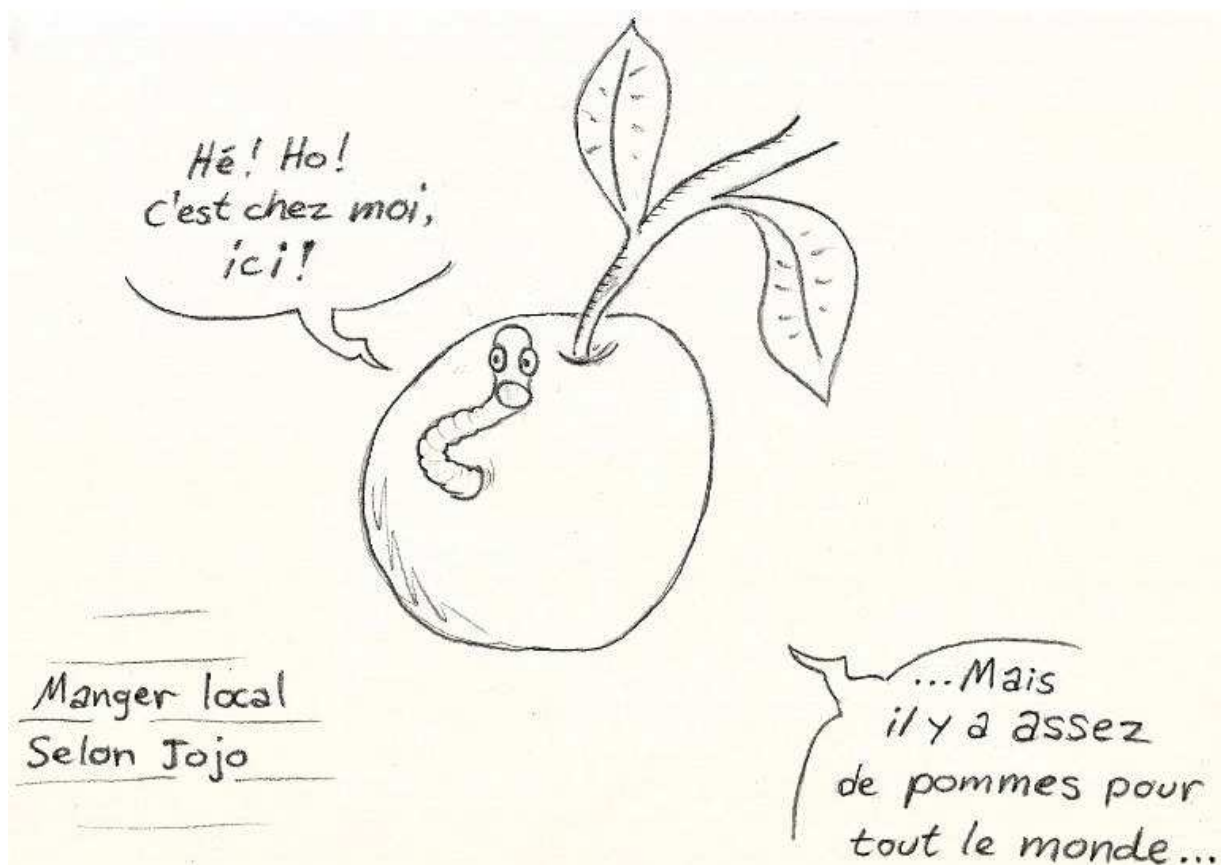 Hé! Ho!
c'est chez moi,
ici!
Manger local
Selon Jojo
...Mais
il y a assez
de pommes pour
tout le monde...